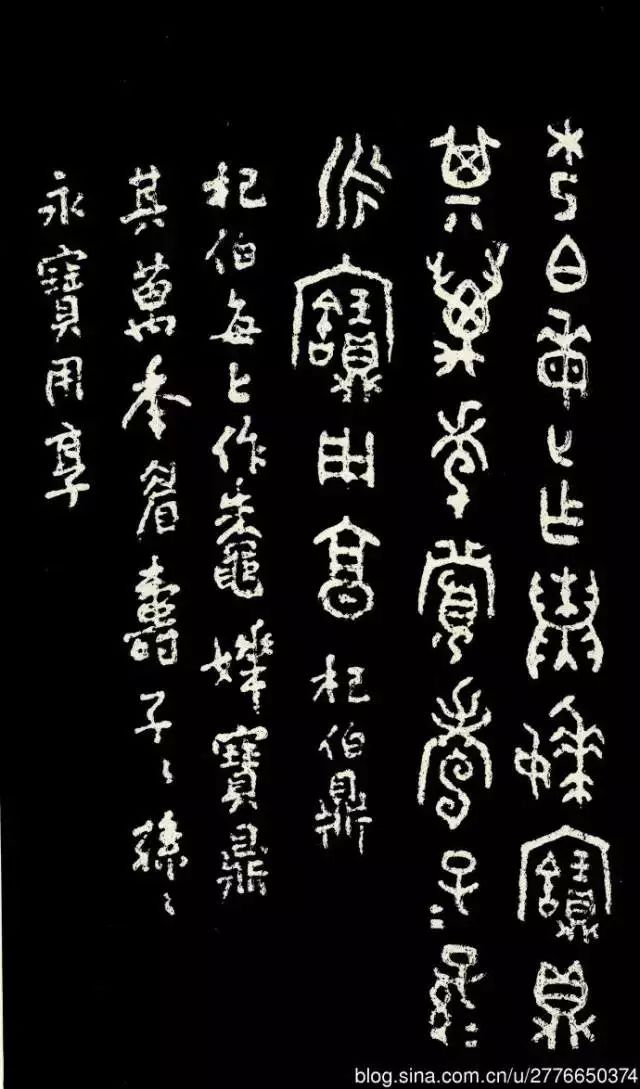 杞白每匕乍鼄㜏寶鼎
其萬年眉壽子〻孫〻
永寶用享 杞伯鼎
杞伯每匕作鼄㜏寶鼎
其萬年眉壽子〻孫〻
永寶用享
blog.sina.com.cn/u/2776650374